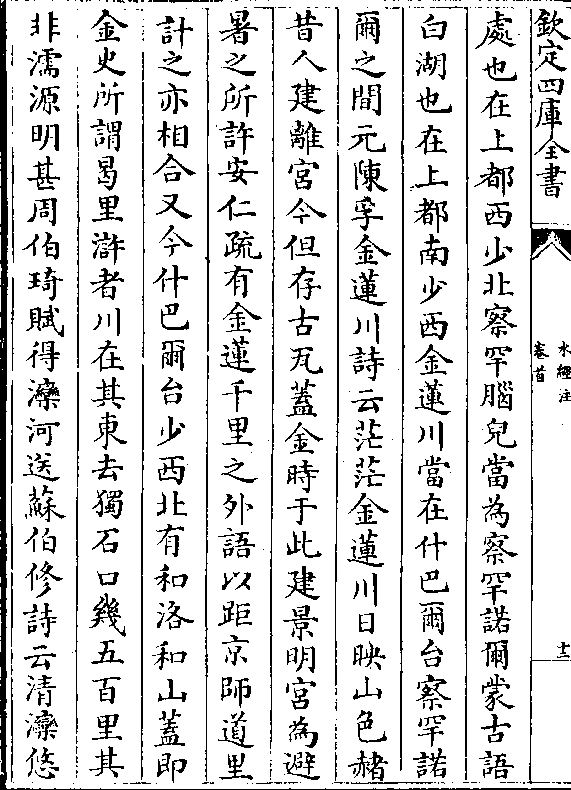 欽定四庫全書
水經注
卷首
十二
處也在上都西少北察罕腦兒當為察罕諾爾蒙古語
白湖也在上都南少西金蓮川當在什巴爾台察罕諾
爾之間元陳孚金蓮川詩云茫茫金蓮川日映山色赭
昔人建離宮今但存古瓦蓋金時于此建景明宮為避
暑之所許安仁疏有金蓮千里之外語以距京師道里
計之亦相合又今什巴爾台少西北有和洛和山蓋即
金史所謂曷里滸者川在其東去獨石口幾五百里其
非濡源明甚周伯琦賦得灤河送蘇伯修詩云清灤悠